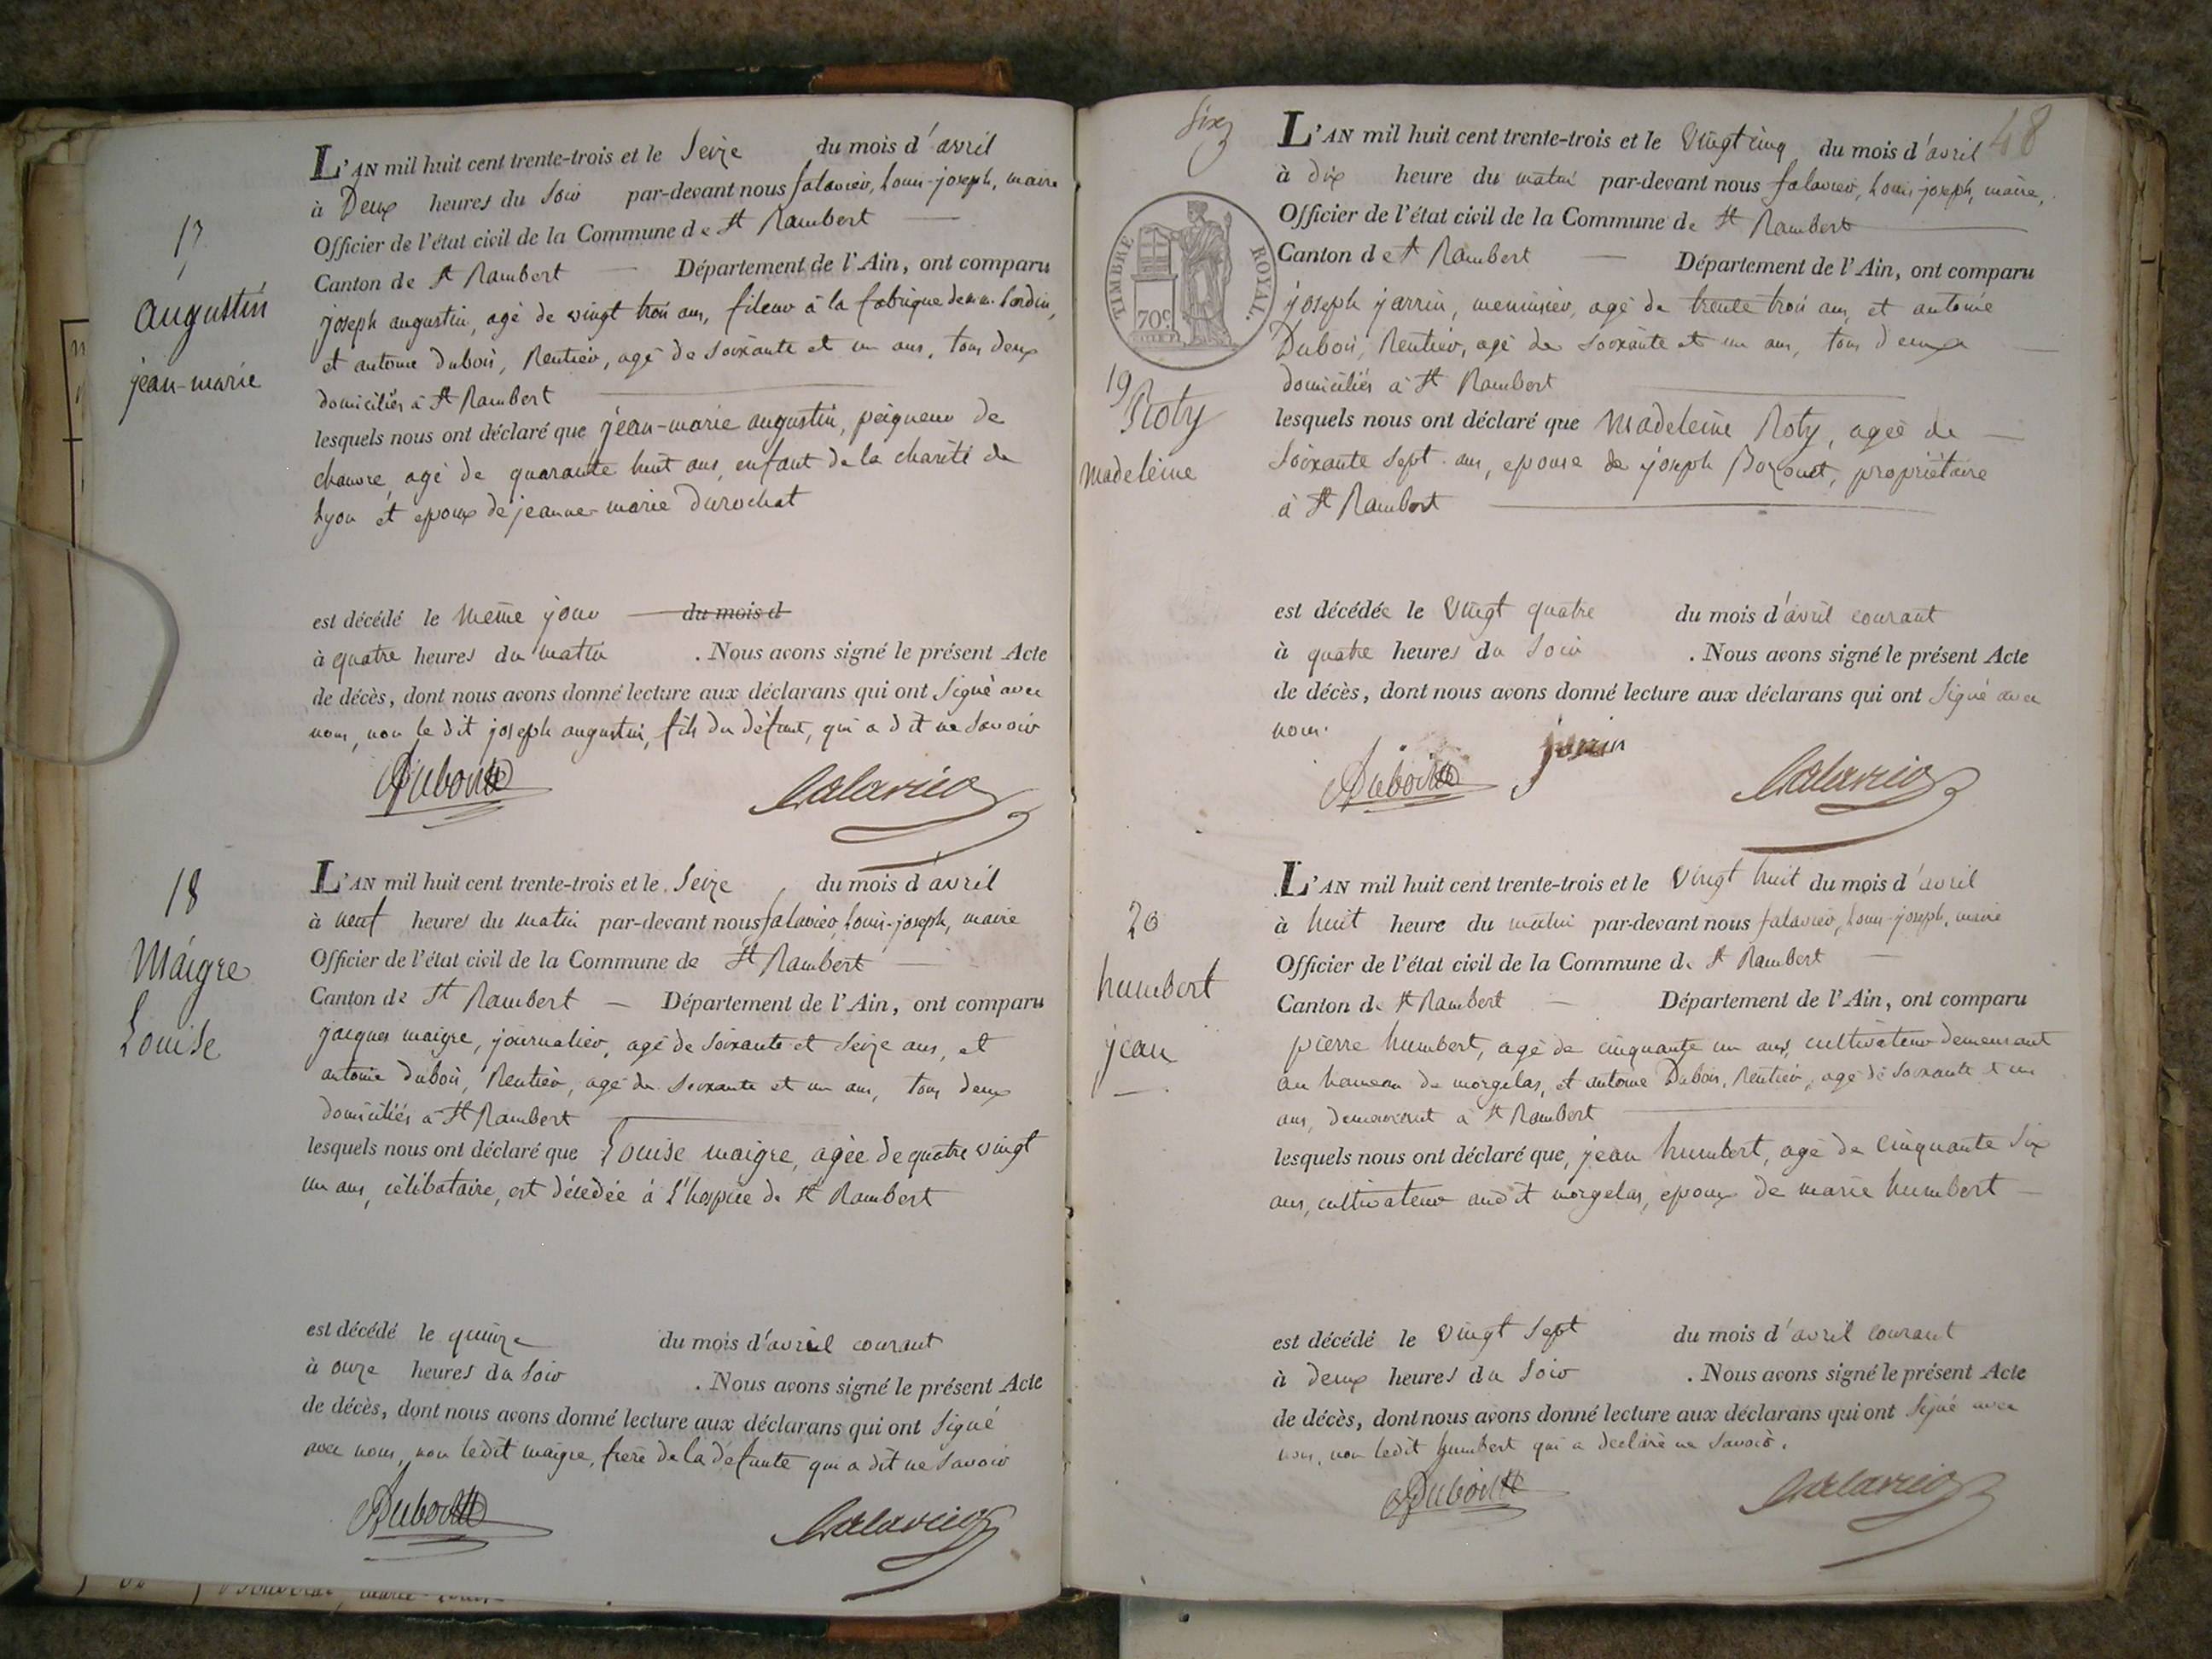 17
augustin
jean-marie
L'AN mil huit cent trente-trois et le Seize du mois d'avril
à Deux heures du Soir par-devant nous falavier, Louis-joseph, maire
Officier de l'état civil de la Commune de St Rambert
Canton de St Rambert Département de l'Ain, ont comparu
joseph augustin, agé de vingt trois ans, fileur à la fabrique de m.
et antoine Dubois, Rentier, agé de Soixante et un ans, tous deux
domiciliés à St Rambert
lesquels nous ont déclaré que jean-marie augustin, peigneur de
chanvre, agé de quarante huit ans, enfant de la charité de
Lyon et epoux de jeanne-marie Durochat
est décédé le même jour du mois d
à quatre heures du matin . Nous avons signé le présent Acte
de décès, dont nous avons donné lecture aux déclarans qui ont Signé avec
nous, non le dit joseph augustin, fils du défunt, qui a dit ne Savoir
Dubois
falavier
18
Maigre
Louise
L'AN mil huit cent trente-trois et le Seize du mois d'avril
à neuf heures du matin par-devant nous falavier, Louis-joseph, maire
Officier de l'état civil de la Commune de St Rambert
Canton de St Rambert Département de l'Ain, ont comparu
jacques maigre, journalier, agé de Soixante et Seize ans, et
antoine Dubois, Rentier, agé de Soixante et un ans, tous deux
domiciliés à St Rambert
lesquels nous ont déclaré que Louise maigre, agée de quatre vingt
un ans, célibataire, est décédée à L'hospice de St Rambert
est décédé le quinze du mois d'avril courant
à onze heures du Soir . Nous avons signé le présent Acte
de décès, dont nous avons donné lecture aux déclarans qui ont Signé
avec nous, non ledit maigre, frère de la défunte qui a dit ne Savoir
Dubois
falavier
48
TIMBRE ROYAL.
70c
19
Roty
Madeleine
L'AN mil huit cent trente-trois et le Vingt cinq du mois d'avril
à dix heure du matin par-devant nous falavier, Louis-joseph, maire,
Officier de l'état civil de la Commune de St Rambert
Canton de St Rambert Département de l'Ain, ont comparu
joseph jarrin, menuisier, agé de trente trois ans, et antoine
Dubois, Rentier, agé de Soixante et un ans, tous deux
domiciliés à St Rambert
lesquels nous ont déclaré que Madeleine Roty, agée de
Soixante Sept ans, epouse de joseph Bozonet, propriétaire
à St Rambert
est décédée le Vingt quatre du mois d'avril courant
à quatre heures du Soir . Nous avons signé le présent Acte
de décès, dont nous avons donné lecture aux déclarans qui ont Signé avec
nous.
Dubois
jarrin
falavier
20
humbert
jean
L'AN mil huit cent trente-trois et le Vingt huit du mois d'avril
à huit heure du matin par-devant nous falavier, Louis-joseph, maire
Officier de l'état civil de la Commune de St Rambert
Canton de St Rambert Département de l'Ain, ont comparu
pierre humbert, agé de cinquante un ans, cultivateur demeurant
au hameau de morgelas, et antoine Dubois, Rentier, agé de Soixante et un
ans, demeurant à St Rambert
lesquels nous ont déclaré que, jean humbert, agé de Cinquante Six
ans, cultivateur audit morgelas, epoux de marie humbert
est décédé le Vingt Sept du mois d'avril courant
à Deux heures du Soir . Nous avons signé le présent Acte
de décès, dont nous avons donné lecture aux déclarans qui ont Signé avec
nous, non ledit humbert qui a déclaré ne Savoir.
Dubois
falavier